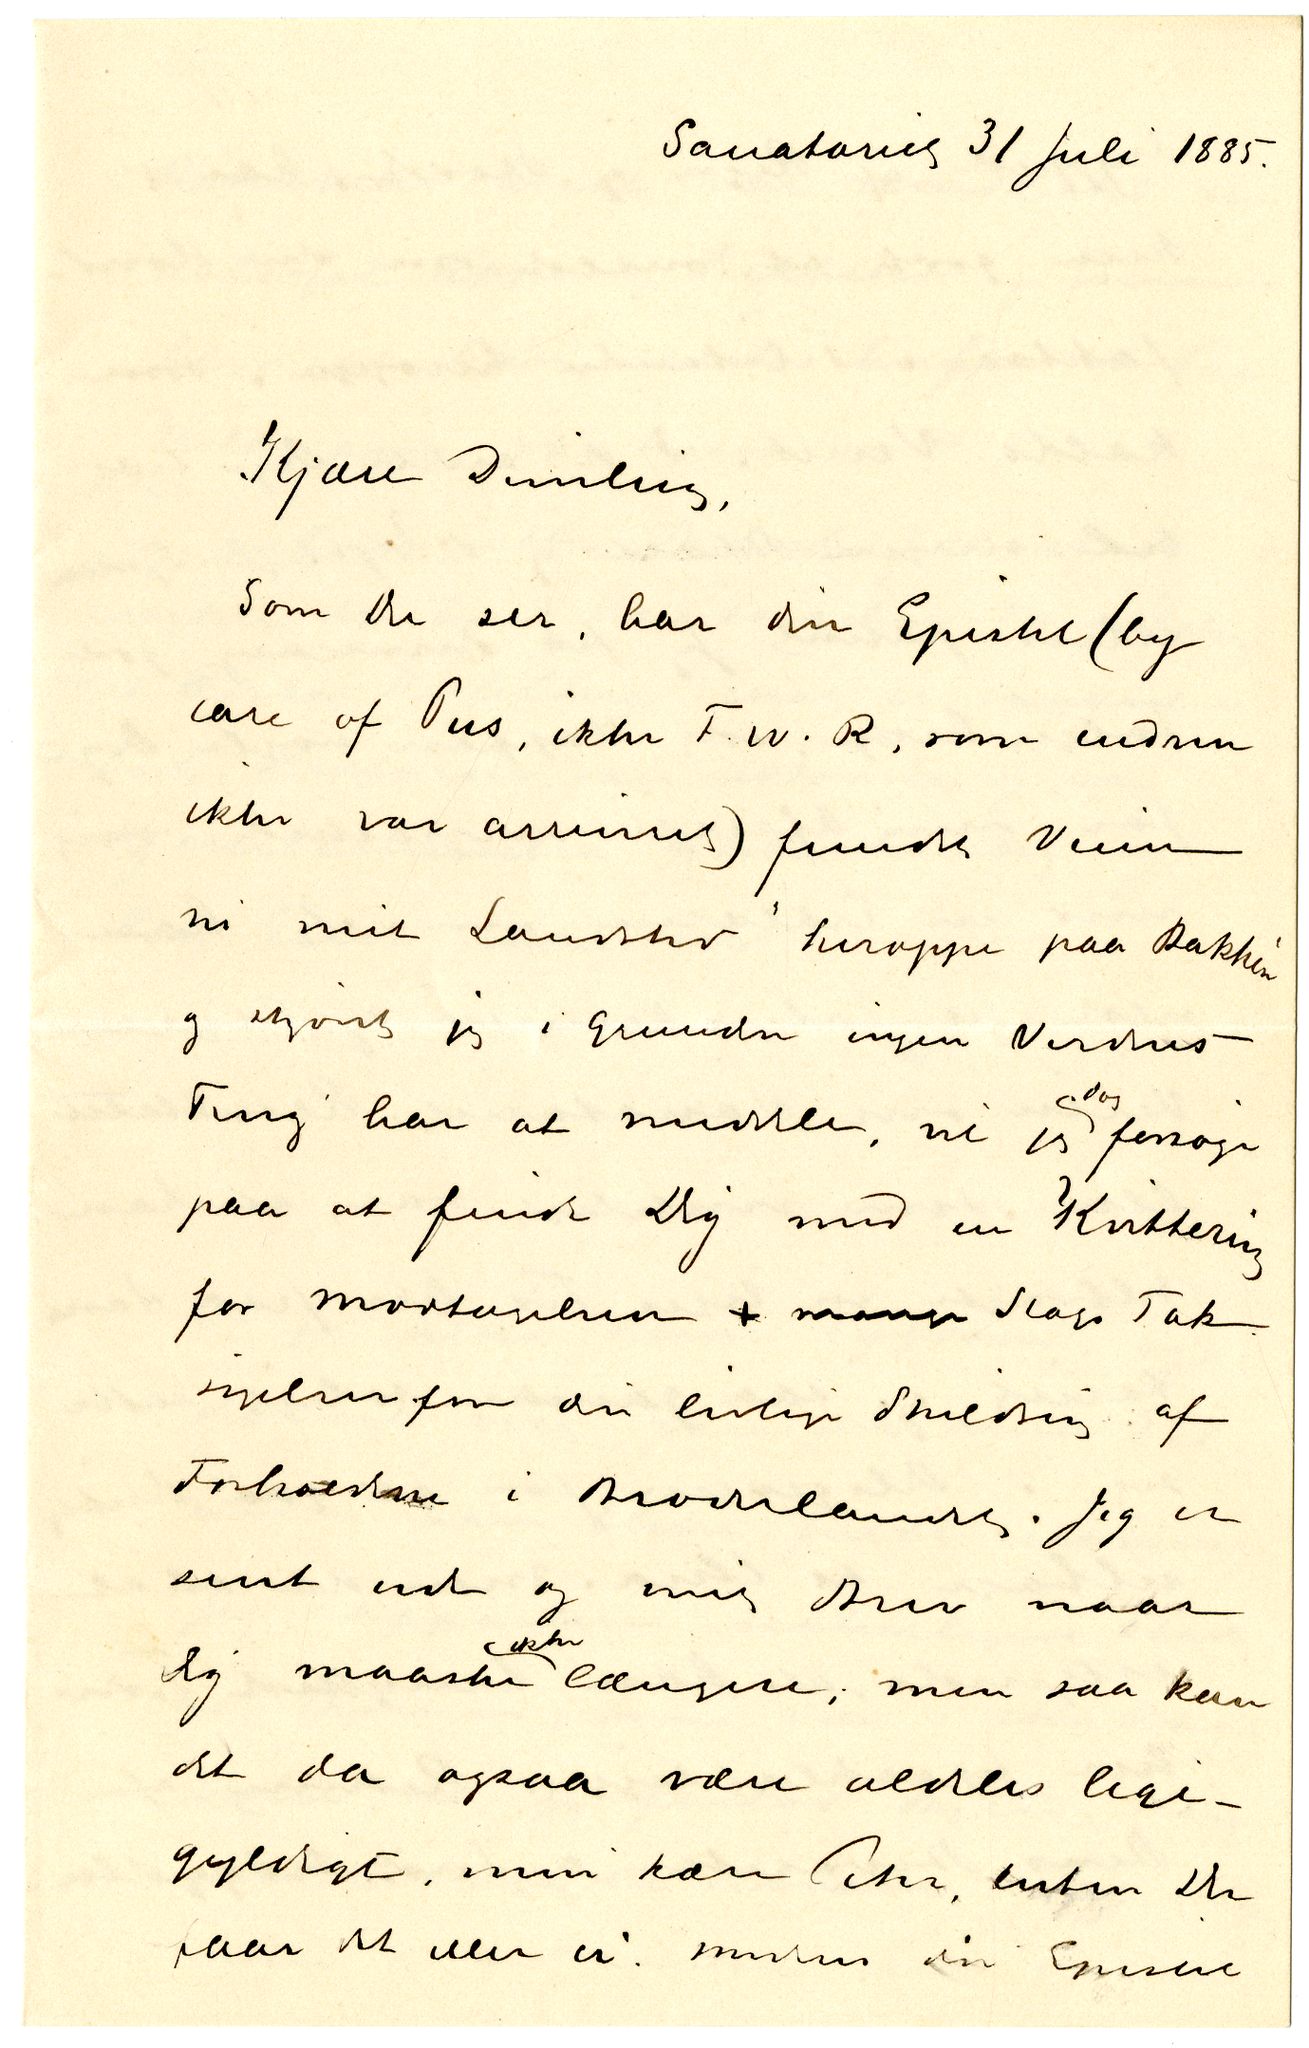 Sanatoriet 31 Juli 1885.
Kjære Dimling,
Som Du ser, har din Epistel (by
care of Pus, ikke F. W. R, som endnu
ikke var arriveret) fundet Veien
til mit Landsted heroppe paa Bakken
og skjønt jeg i Grunden ingen Verdens
Ting har at meddele, vil jeg idag forsøge
paa at finde Dig med en Kvittering
for Modtagelsen + mange Slags Tak
sigelser for din livlige Skildring af
Forholdene i Broderlandet. Jeg er
sent ude og mit Brev naar
Dig maaske ikke længere, men saa kan
det da ogsaa være aldeles lige-
gyldigt, min kære Peter, enten Du
faar det eller ei. medens din Epistel